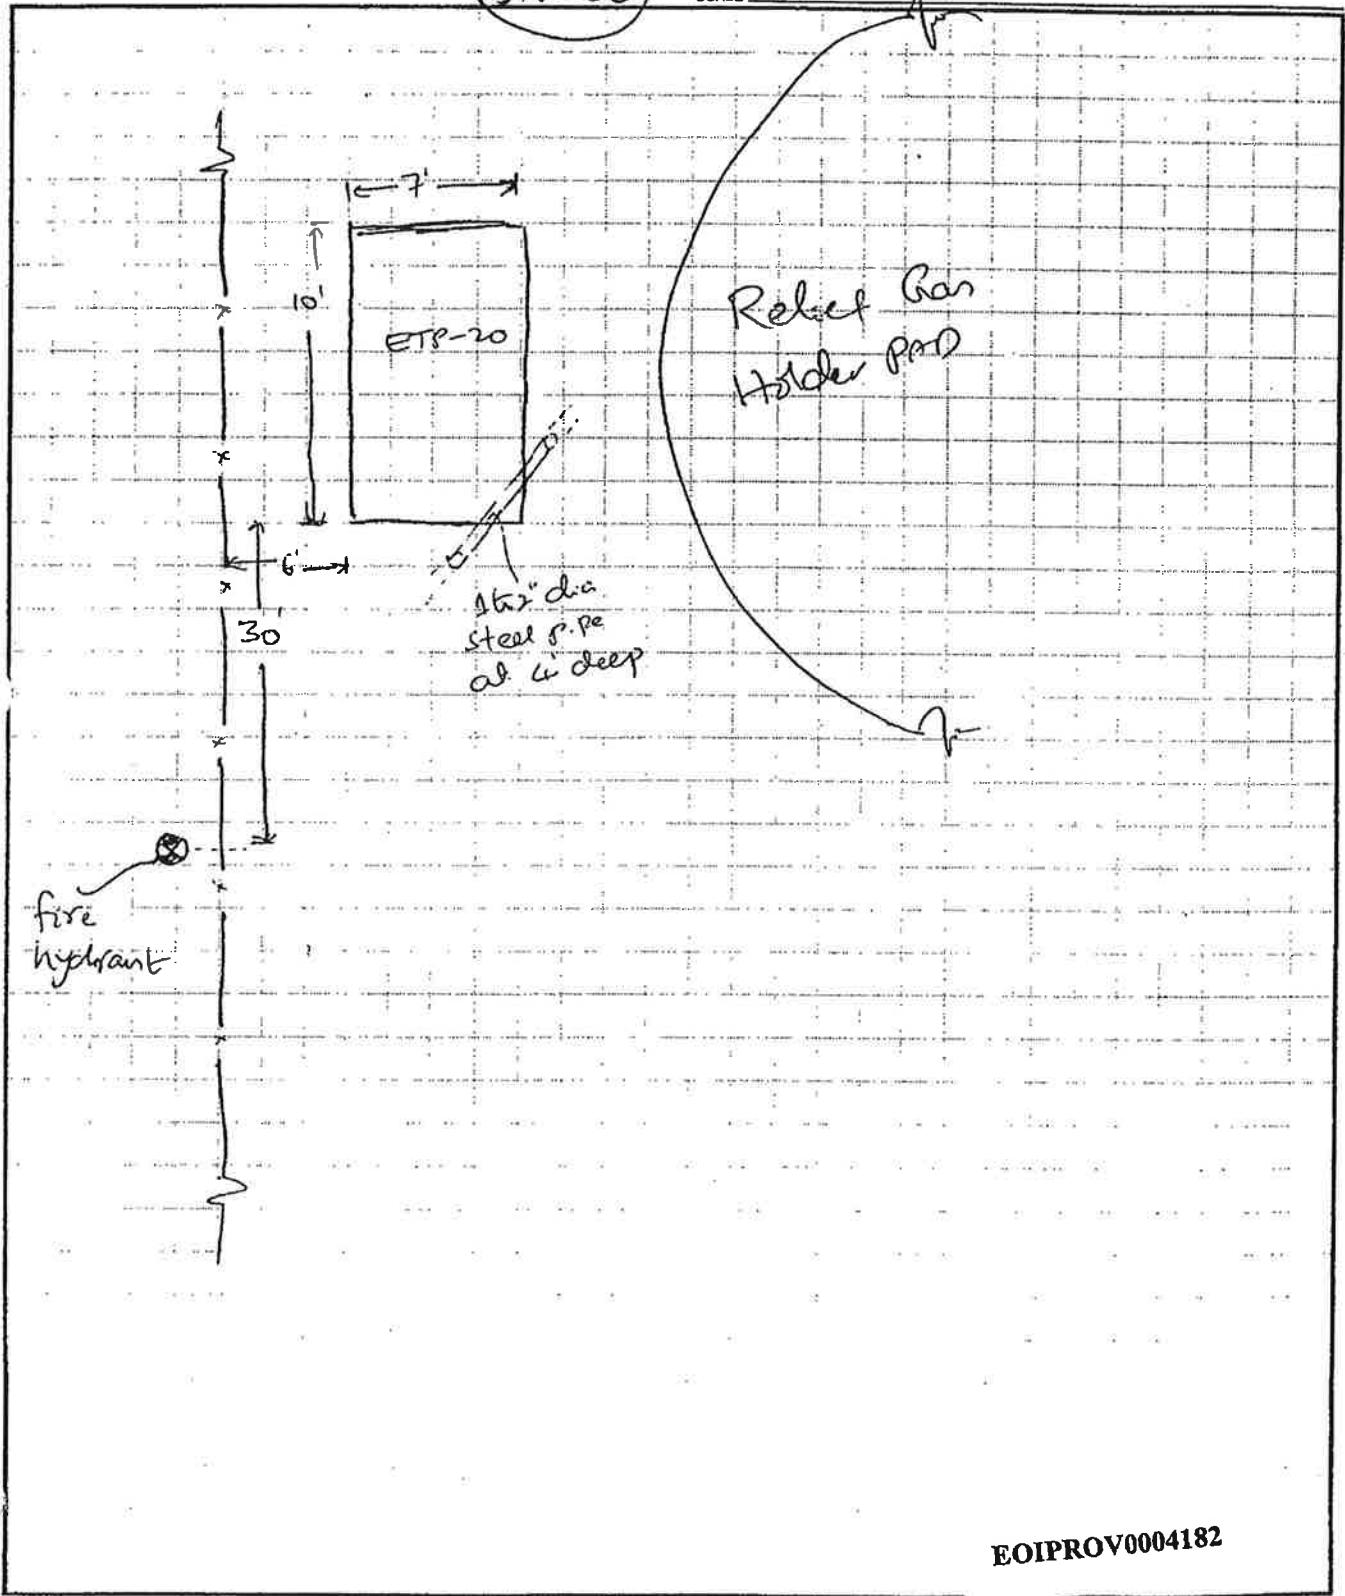 7'
10'
ETP-20
Relief Gas
Holder PAD
6'
30'
1 to 2" dia
steel pipe
at 4' deep
fire
hydrant
EOIPROV0004182